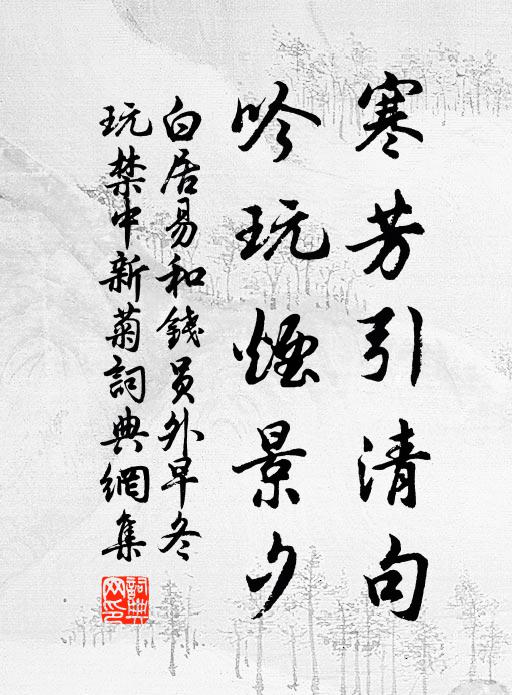 寒芳引清句
吟玩煙景夕
白居易和錢員外早冬
玩禁中新菊詞典網集
詞典网印